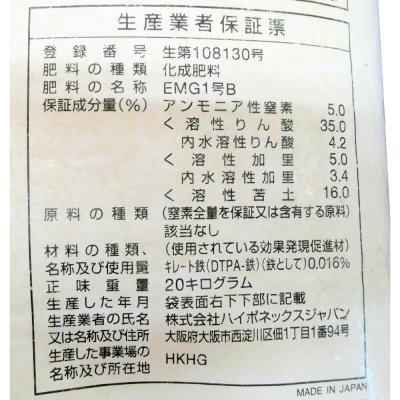 生産業者保証票
登録番号 生第108130号
肥料の種類 化成肥料
肥料の名称 EMG1号B
保証成分量(%) アンモニア性窒素 5.0
く溶性りん酸 35.0
内水溶性りん酸 4.2
く溶性加里 5.0
内水溶性加里 3.4
く溶性苦土 16.0
原料の種類 (窒素全量を保証又は含有する原料)
該当なし
材料の種類、 (使用されている効果発現促進材)
名称及び使用量 キレート鉄(DTPA-鉄)(鉄として)0.016%
正味重量 20キログラム
生産した年月 袋表面右下下部に記載
生産業者の氏名 株式会社ハイポネックスジャパン
又は名称及び住所 大阪府大阪市西淀川区佃1丁目1番94号
生産した事業場の HKHG
名称及び所在地
MADE IN JAPAN